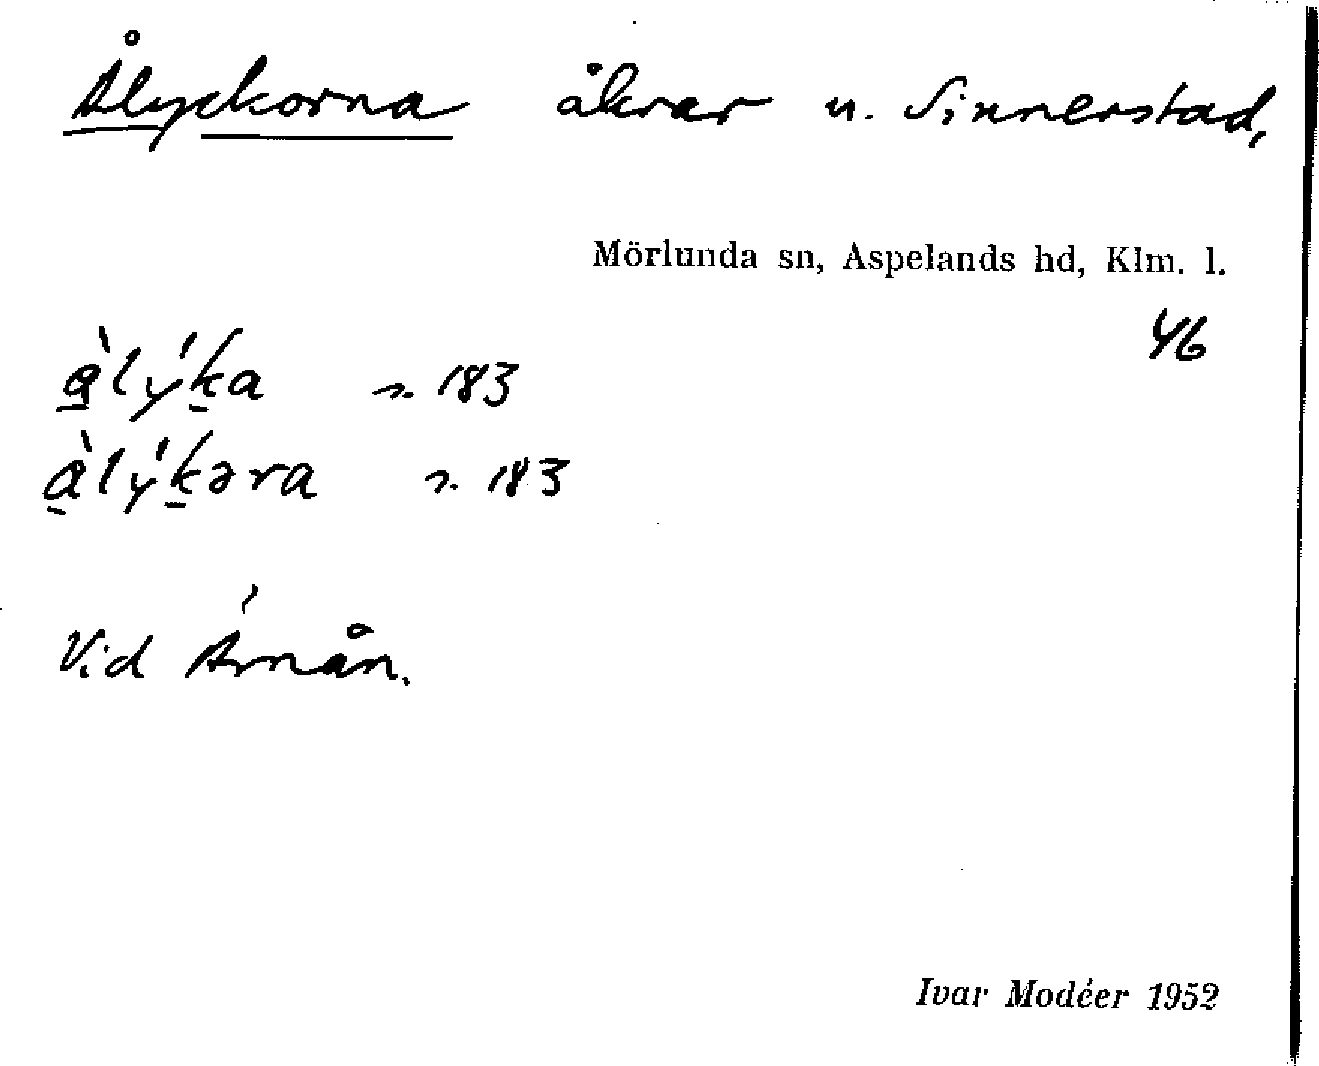 Ålyckorna åkrar u. Sinnerstad,
Mörlunda sn, Aspelands hd, Klm. l.
46
à̱lýḵa s. 183
à̱lýḵəra s. 183
Vid Árnån.
Ivar Modéer 1952